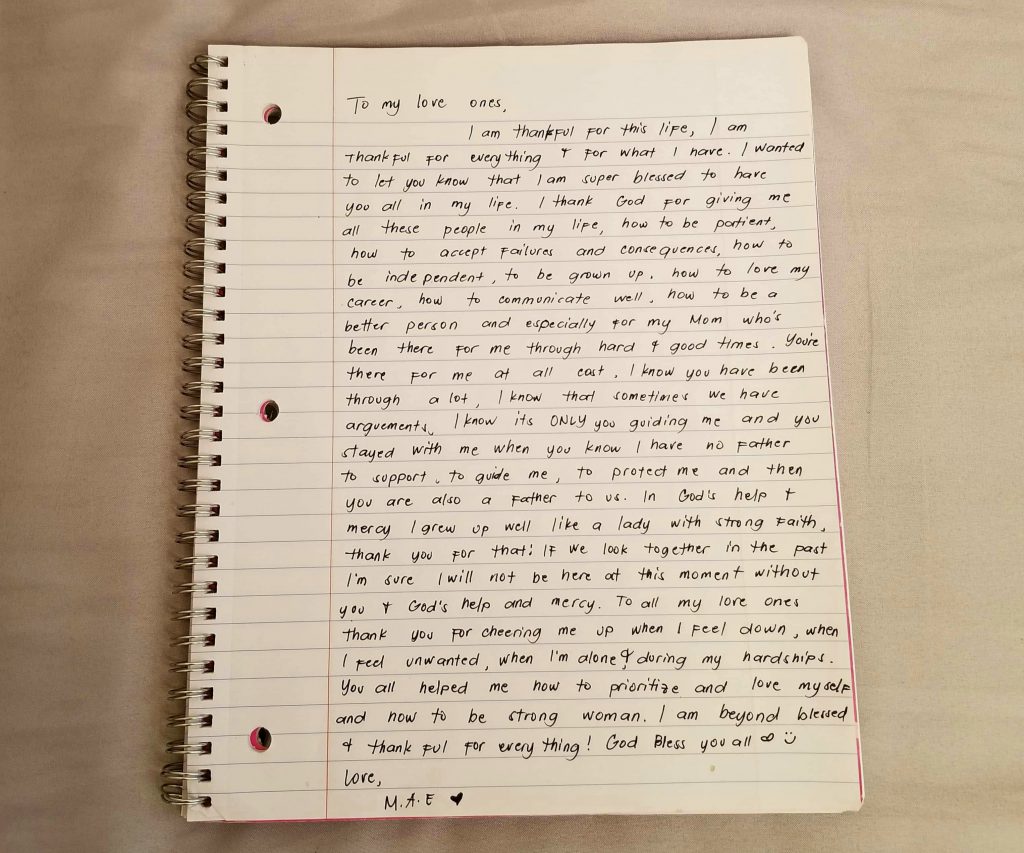 To my love ones,
I am thankful for this life, I am
thankful for everything & for what I have. I wanted
to let you know that I am super blessed to have
you all in my life. I thank God for giving me
all these people in my life, how to be patient,
how to accept failures and consequences, how to
be independent, to be grown up, how to love my
career, how to communicate well, how to be a
better person and especially for my Mom who's
been there for me through hard & good times. You're
there for me at all cost, I know you have been
through a lot, I know that sometimes we have
arguements, I know its ONLY you guiding me and you
stayed with me when you know I have no Father
to support, to guide me, to protect me and then
you are also a Father to us. In God's help &
mercy I grew up well like a lady with strong faith,
thank you for that! If we look together in the past
I'm sure I will not be here at this moment without
you & God's help and mercy. To all my love ones
thank you for cheering me up when I feel down, when
I feel unwanted, when I'm alone & during my hardships.
You all helped me how to prioritize and love myself
and how to be strong woman. I am beyond blessed
& thankful for everything! God Bless you all ∞ ☺
Love,
M.A.E ♥